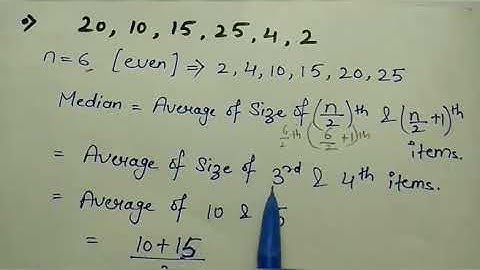 20, 10, 15, 25, 4, 2
n=6, [even] ⇒ 2, 4, 10, 15, 20, 25
Median = Average of Size of (n/2)th & (n/2+1)th items.
6/2 th (6/2+1)th
= Average of Size of 3rd & 4th items.
= Average of 10 &
= 10+15